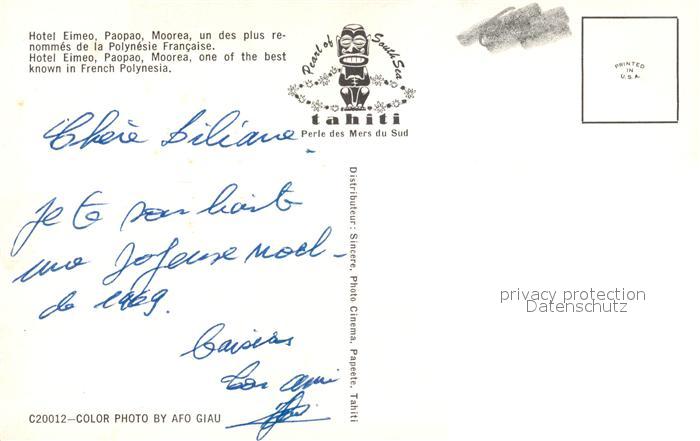 Hotel Eimeo, Paopao, Moorea, un des plus re-
nommés de la Polynésie Française.
Hotel Eimeo, Paopao, Moorea, one of the best
known in French Polynesia.
Pearl of South Sea
tahiti
Perle des Mers du Sud
PRINTED
IN
U.S.A.
Chère Liliane
je te souhaite
une Joyeuse Noel
de 1969.
Baisers
ton ami
Distributeur: Sincere, Photo Cinema, Papeete, Tahiti
privacy protection
Datenschutz
C20012—COLOR PHOTO BY AFO GIAU